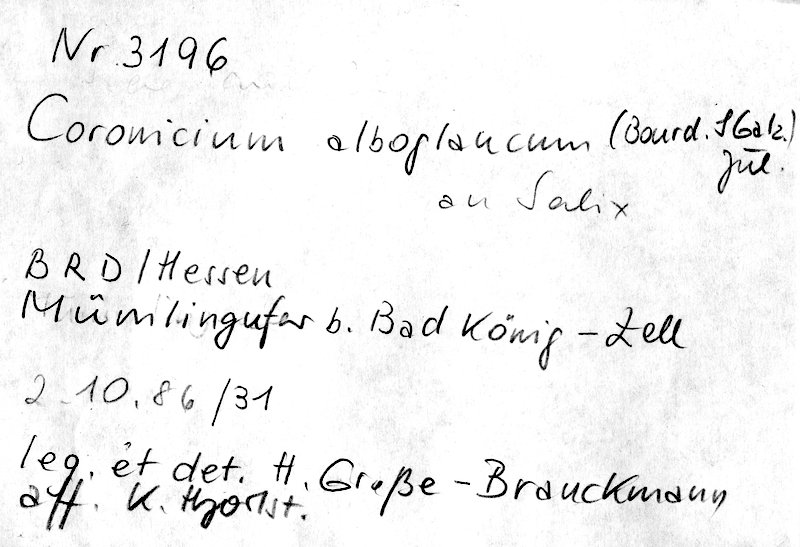 Nr. 3196
Coronicium alboglaucum (Bourd. & Galz.)
Jül.
an Salix
BRD/Hessen
Mümlingufer b. Bad König-Zell
2.10.86/31
leg. et det. H. Große-Brauckmann
aff. K. Hjortst.